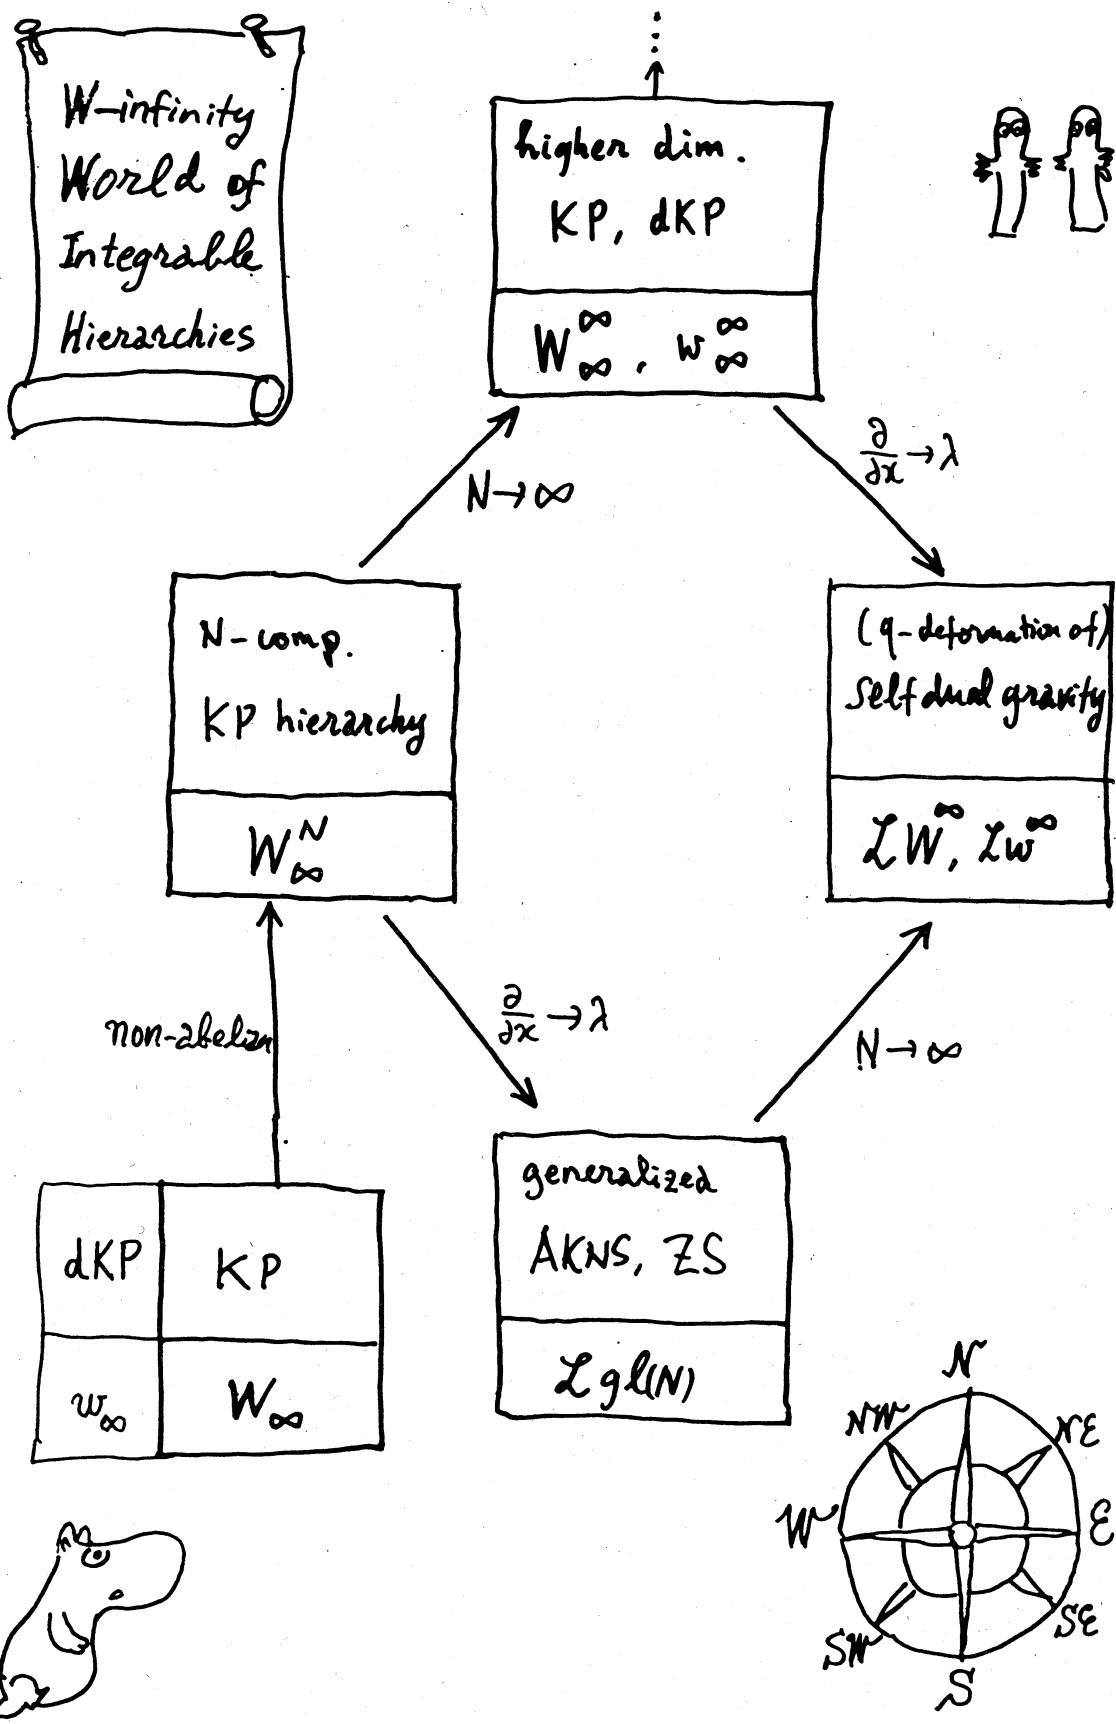 W-infinity
World of
Integrable
Hierarchies
⋮
higher dim.
KP, dKP
W_∞^∞, w_∞^∞
N→∞
∂/∂x → λ
N-comp.
KP hierarchy
W_∞^N
(q-deformation of)
Selfdual gravity
ℒW^∞, ℒw^∞
non-abelian
∂/∂x → λ
N→∞
dKP
KP
w_∞
W_∞
generalized
AKNS, ZS
ℒgl(N)
N
NW
NE
W
E
SW
SE
S